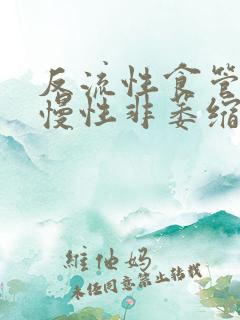 反流性食管
慢性非萎缩
维他妈
未经同意禁止转载